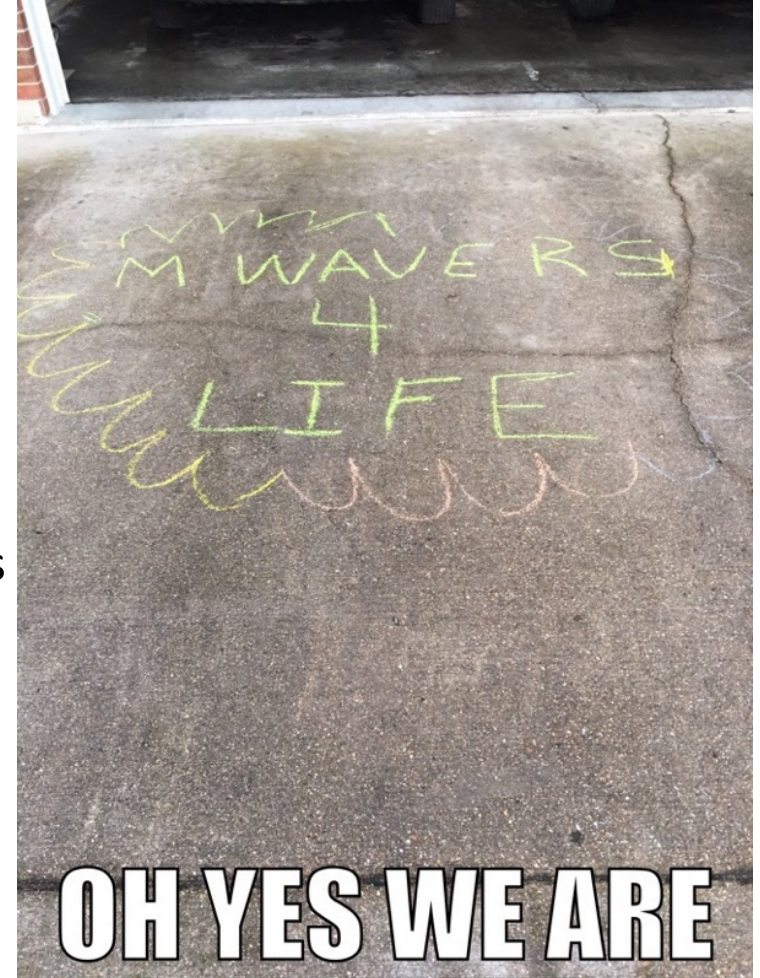 M WAVERS
4
LIFE
s
OH YES WE ARE